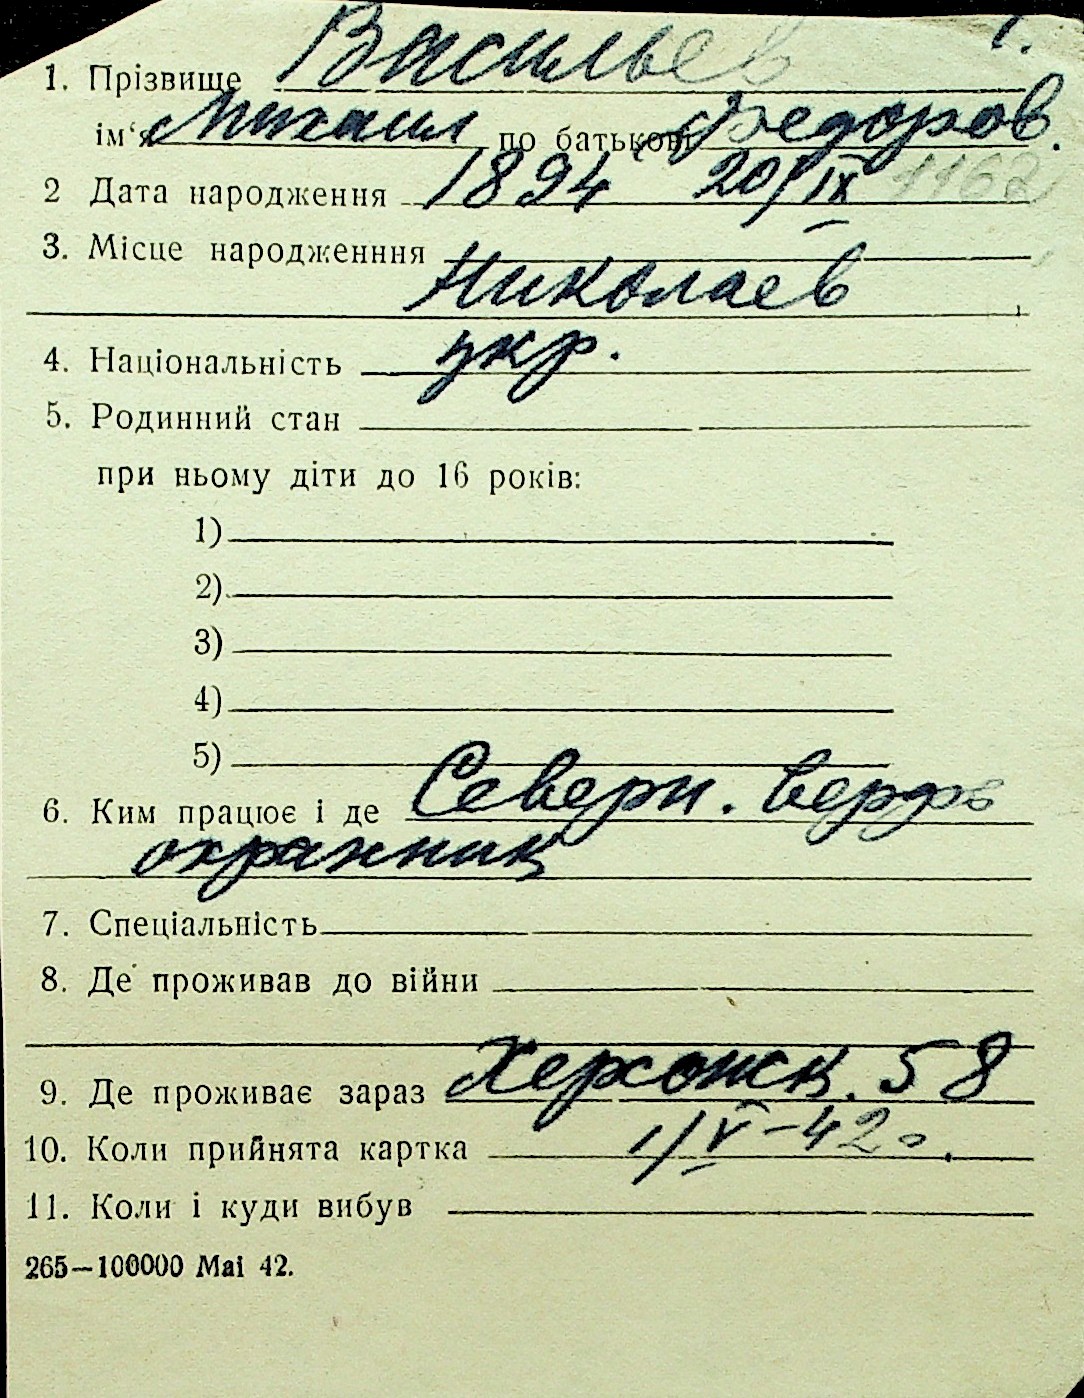 1.
1. Прізвище Васильев
ім'я Михаил по батькові Федоров.
2 Дата народження 1894 20/IX 1162
3. Місце народженння
Николаев
4. Національність укр.
5. Родинний стан
при ньому діти до 16 років:
1)
2)
3)
4)
5)
6. Ким працює і де Северн. верфь
охранник
7. Спеціальність
8. Де проживав до війни
9. Де проживає зараз Херсонск. 58
10. Коли прийнята картка 1/V-42 г.
11. Коли і куди вибув
265—100000 Mai 42.